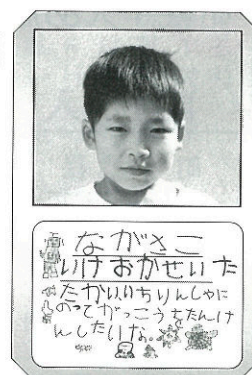 ながさこ
いけおかせいた
たかいいちりんしゃに
のってがっこうをたんけ
んしたいな。